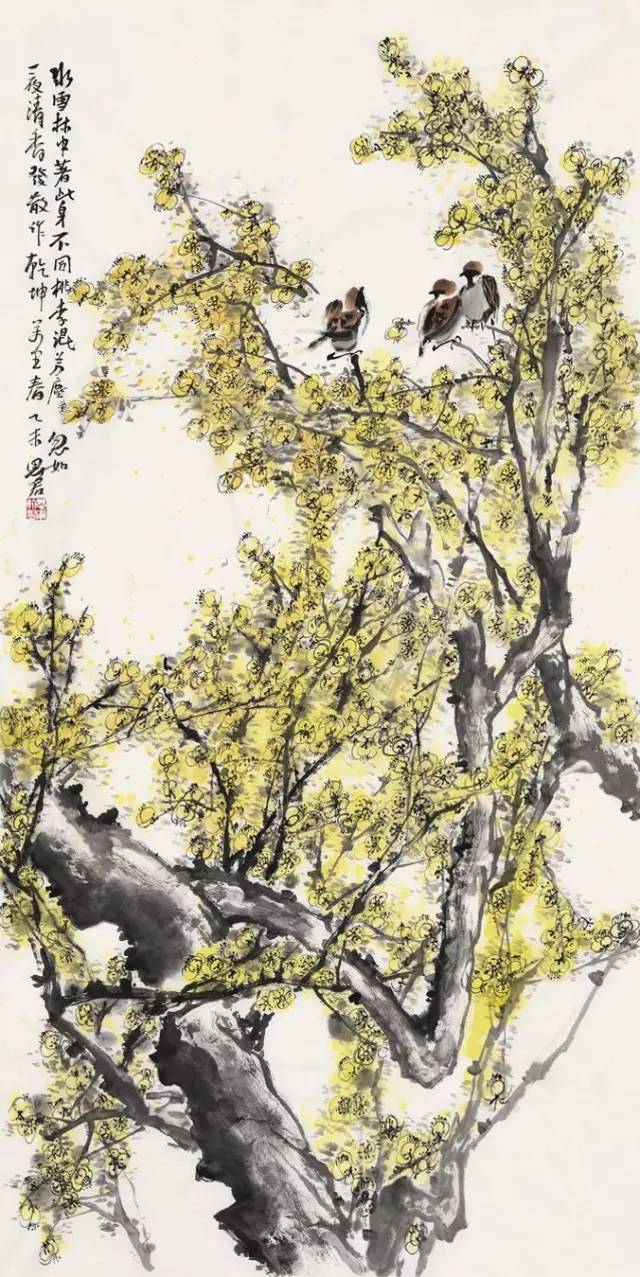 冰雪林中著此身不同桃李混芳塵忽如
一夜清香發散作乾坤萬里春乙未